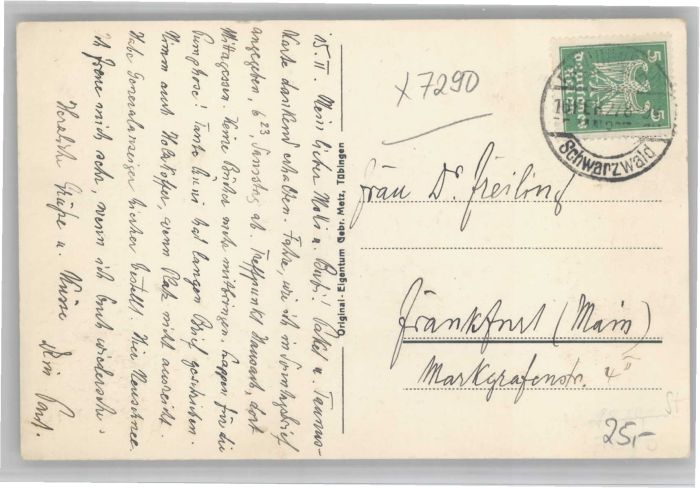 15.II. Mein lieber Molli u. Bubi! Paket u. Taunus-
Karte dankend erhalten. Fahre, wie ich im Sonntagsbrief
angegeben, 6 23 Samstag ab. Treffpunkt Hausach, dort
Mittagessen. Keine Bücher mehr mitbringen. Lappen für die
Pumphose! Tante hat langen Brief geschrieben.
Nimm auch Holzkoffer, wenn Platz nicht ausreicht.
Habe Generalanzeiger hierher bestellt. Hier Neuschnee.
Ich freue mich sehr, wenn ich Euch wiedersehe.
Herzliche Grüße u. Küsse Dein
Original-Eigentum Gebr. Metz, Tübingen
x7290
5 5
Schwarzwald
Frau Dr. Freiling
Frankfurt (Main)
Markgrafenstr. 4 II
25,-